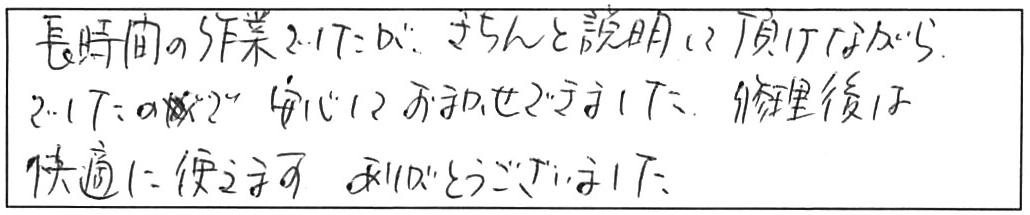 長時間の作業でしたが、きちんと説明して頂けながら、
でしたので 安心しておまかせできました。修理後は
快適に使えます ありがとうございました